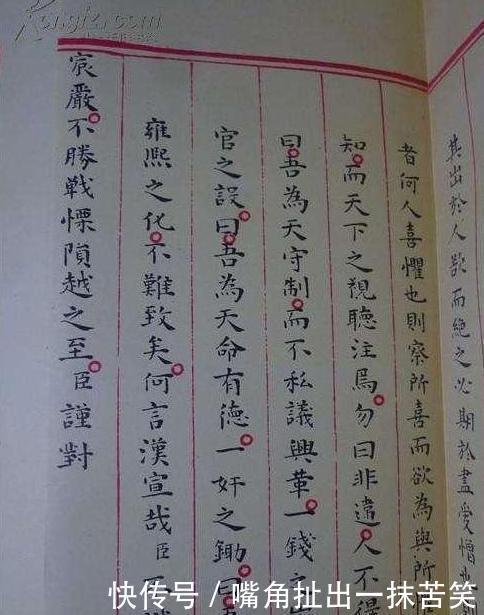 其出於人欲而絶之必期於盡愛憎
者何人喜懼也則察所喜而欲為與所
知而天下之視聽注焉勿曰非違人不
曰吾為天守制而不私議興革一錢之
官之誤曰吾為天命有德一奸之鋤曰
雍熙之化不難致矣何言漢宣哉臣
宸嚴不勝戰慄隕越之至臣謹對
快传号/嘴角扯出一抹苦笑